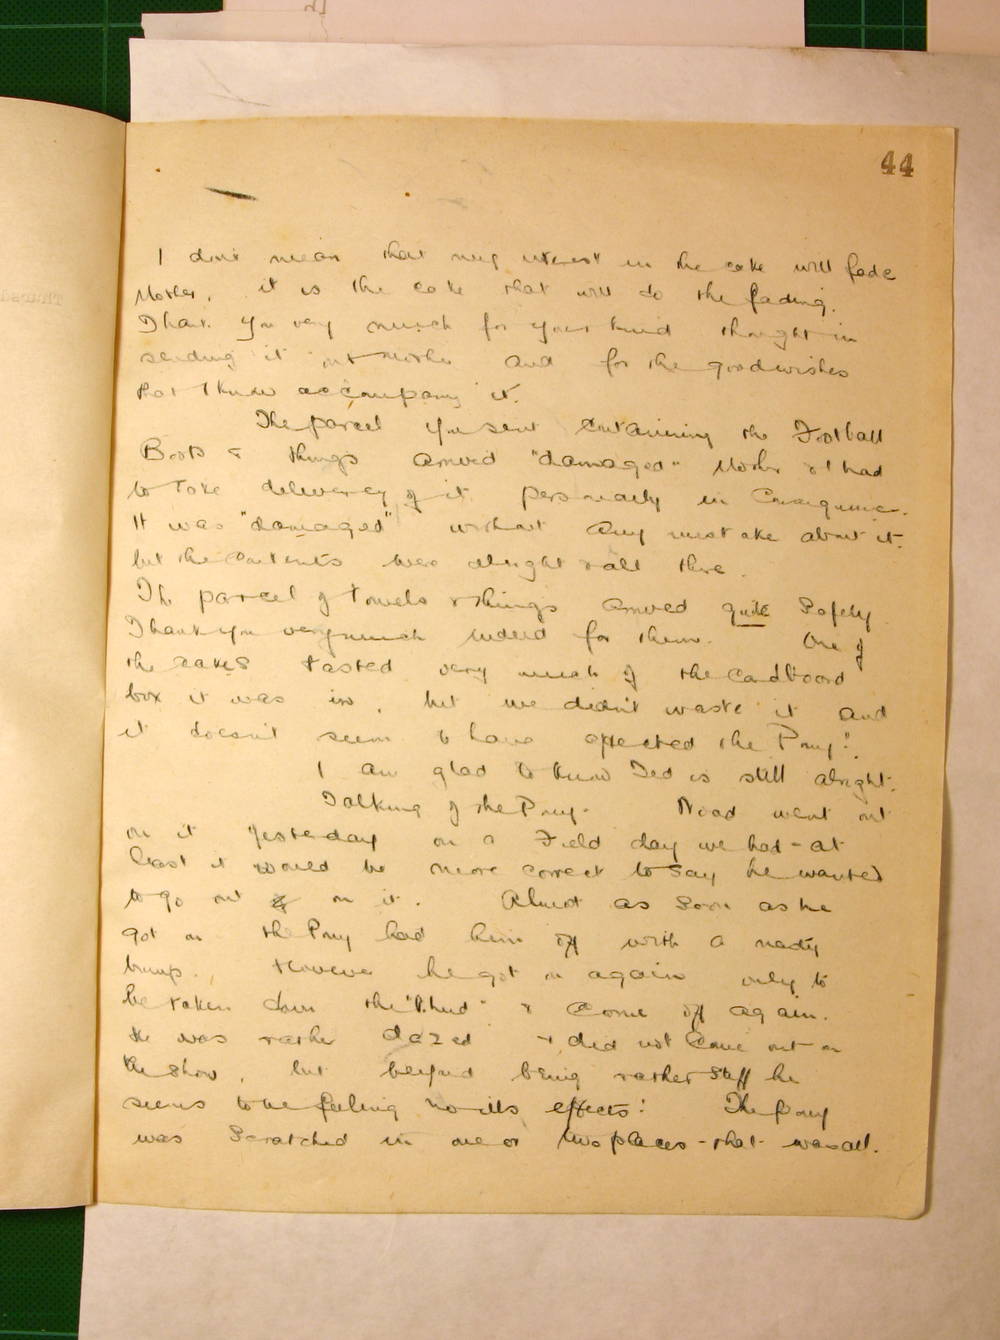 44
I don't mean that my interest in the cake will fade
Mother, it is the cake that will do the fading.
Thank you very much for your kind thought in
sending it out Mother and for the good wishes
that I know accompany it.
The parcel you sent containing the Football
Boots & things arrived "damaged" Mother & I had
to take delivery of it personally in consequence.
It was "damaged" without any mistake about it.
but the contents were alright & all there.
The parcel of towels & things arrived quite safely
Thank you very much indeed for them. One of
the cakes tasted very much of the cardboard
box it was in, but we didn't waste it and
it doesn't seem to have effected the Pony!
I am glad to know Ted is still alright.
Talking of the Pony. Noad went out
on it yesterday on a Field day we had - at
least it would be more correct to say he wanted
to go out on it. Almost as soon as he
got on the Pony had him off with a nasty
bump. However he got on again only to
be taken down the & come off again.
He was rather dazed & did not come out on
the show, but beyond being rather stiff he
seems to be feeling no ills effects! The pony
was scratched in one or two places - that was all.